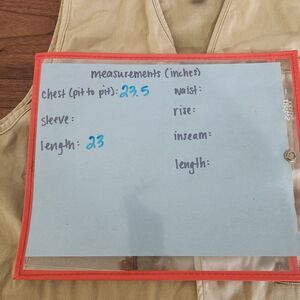 measurements (inches)
chest (pit to pit): 23.5
sleeve:
length: 23
waist:
rise:
inseam:
length: